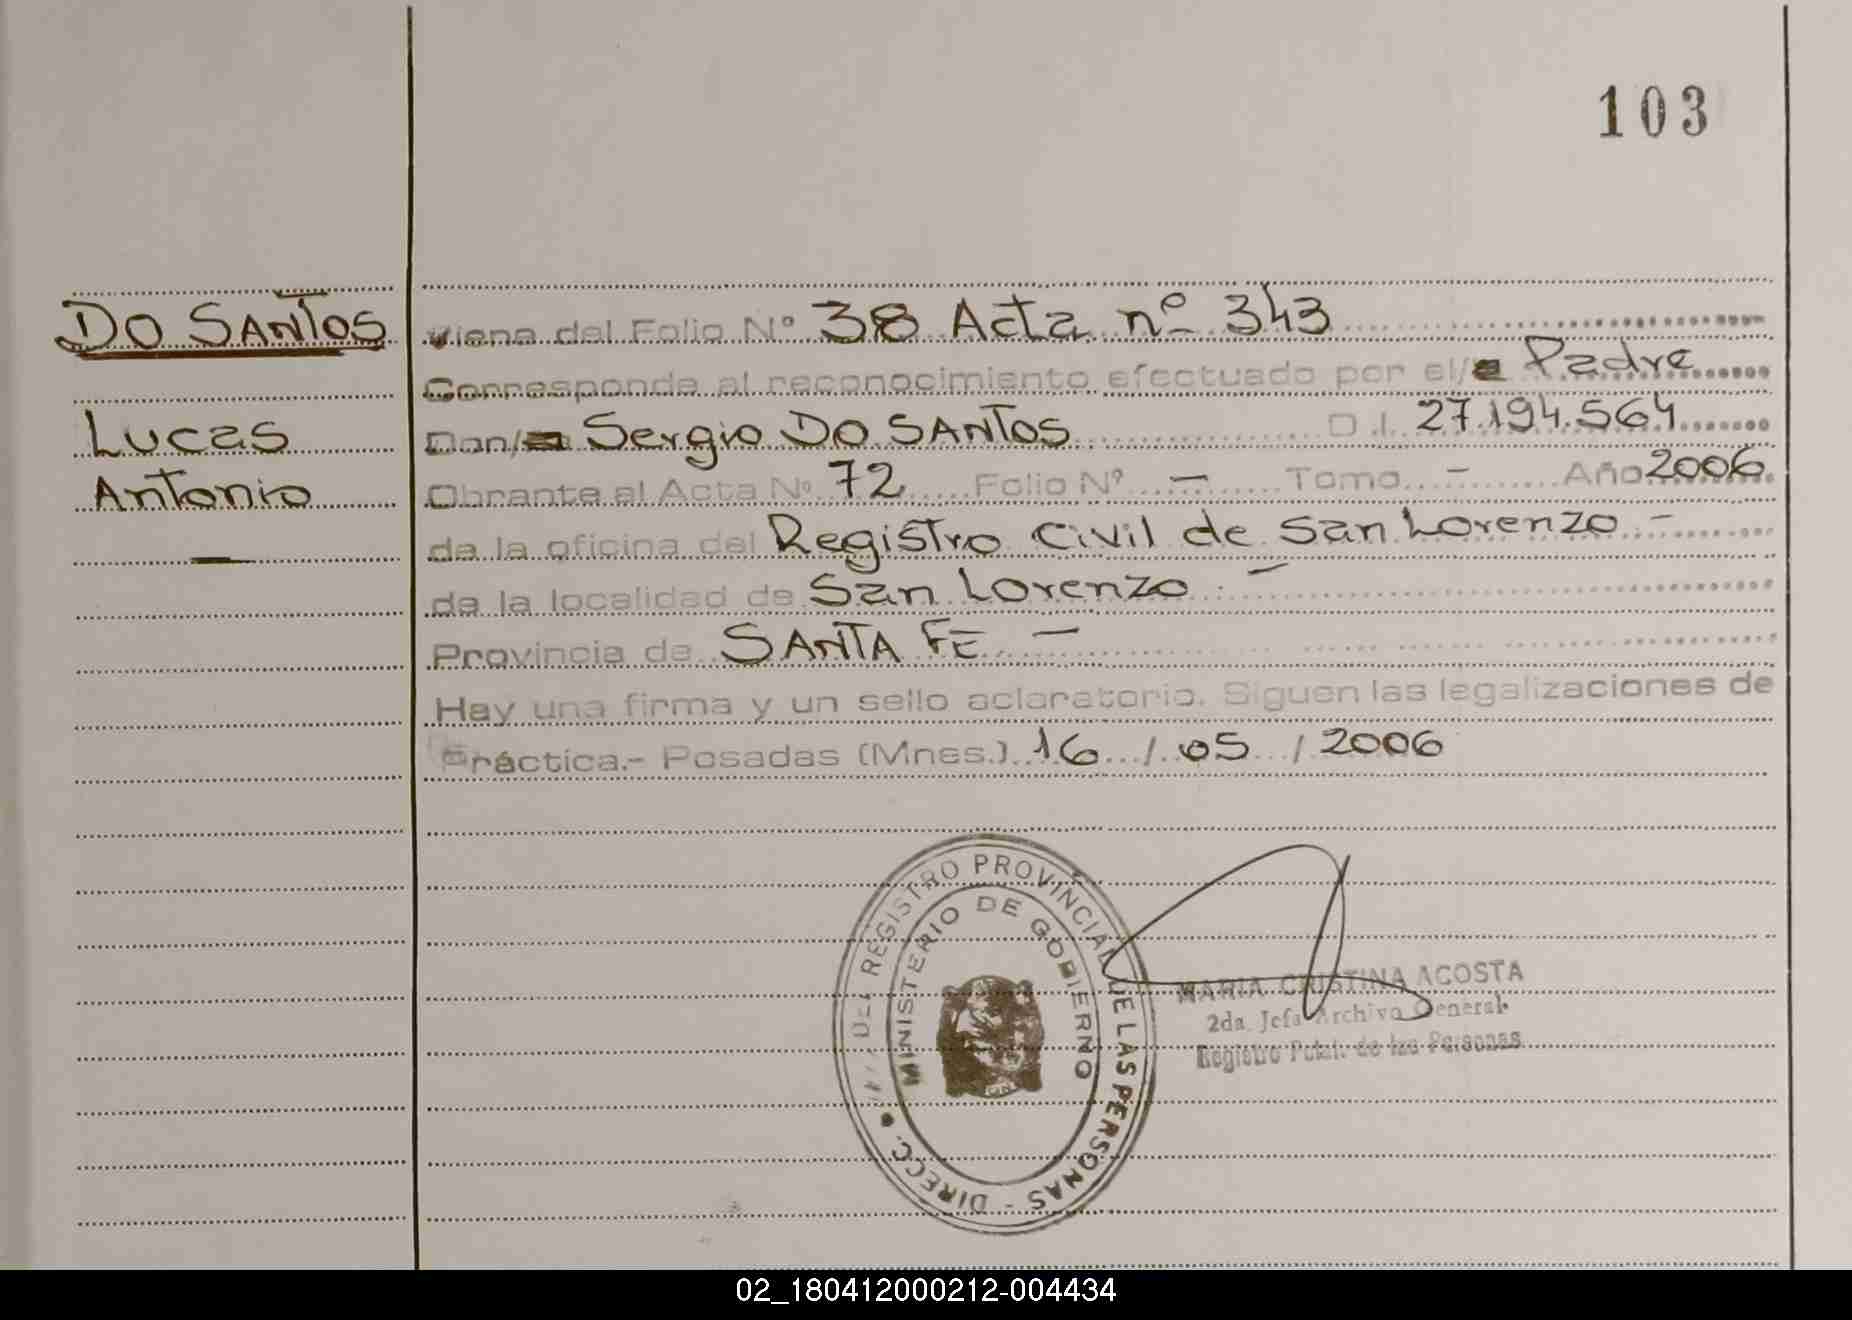 103
DO SANTOS
Lucas
Antonio
—
Viene del Folio Nº 38 Acta nº 343
Corresponde al reconocimiento efectuado por el/ Padre
Don/ Sergio DO SANTOS D.I. 27.194.564
Obrante al Acta Nº 72 Folio Nº — Tomo - Año 2006
de la oficina del Registro Civil de San Lorenzo -
de la localidad de San Lorenzo . -
Provincia de SANTA FE -
Hay una firma y un sello aclaratorio. Siguen las legalizaciones de
Práctica.- Posadas (Mnes.) 16 / 05 / 2006
DIRECC. DEL REGISTRO PROVINCIAL DE LAS PERSONAS -
MINISTERIO DE GOBIERNO
MARIA CRISTINA ACOSTA
2da. Jefa Archivo General
Registro Pcial. de las Personas
02_180412000212-004434